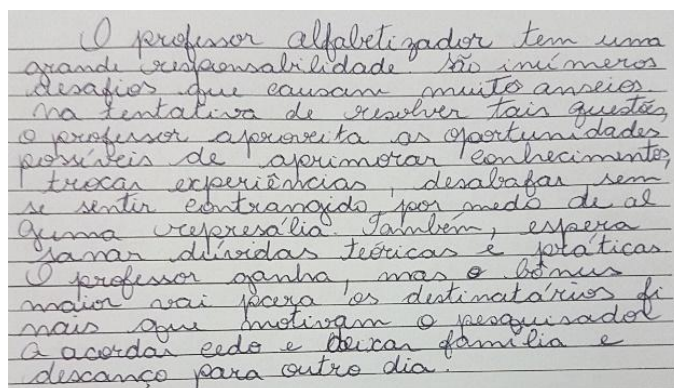 O professor alfabetizador tem uma
grande responsabilidade. São inúmeros
desafios que causam muito anseios
na tentativa de resolver tais questões,
o professor aproveita as oportunidades
possíveis de aprimorar conhecimentos,
trocas experiências, desabafar sem
se sentir contrangido, por medo de al
guma represália. Também, espera
sanar dúvidas teóricas e práticas
O professor ganha, mas o bônus
maior vai para os destinatários fi
nais que motivam o pesquisador
a acordar cedo e deixar família e
descanço para outro dia.